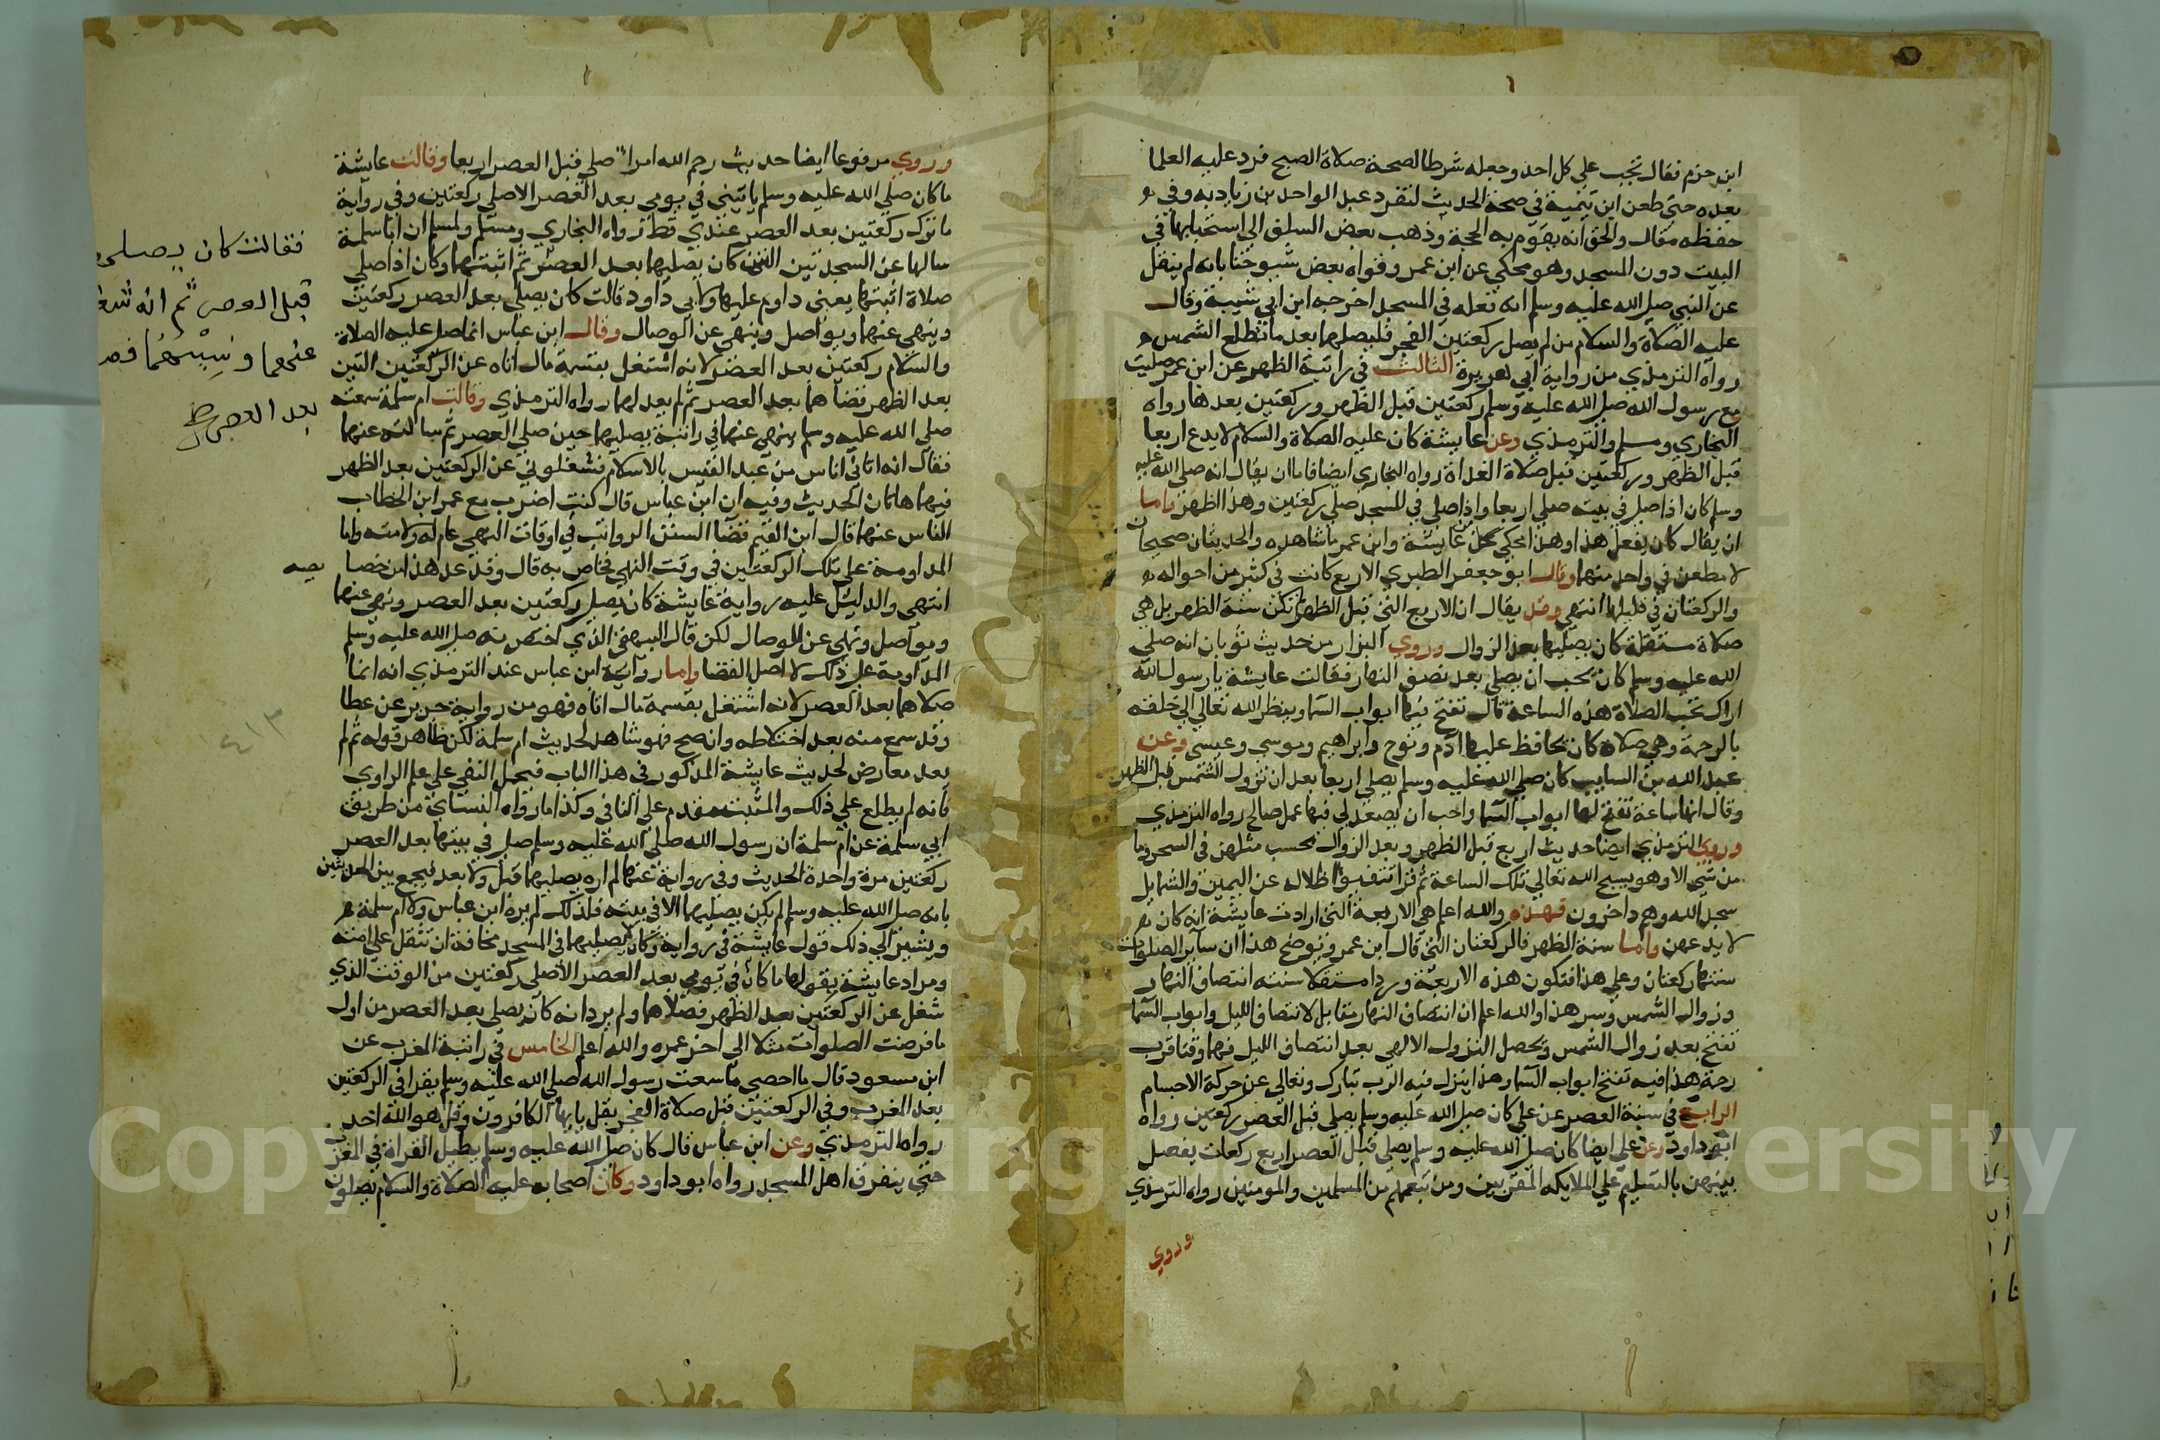 ابن حزم فقال تجب على كل احد وجعله شرطا لصحة صلاة الصبح فرد عليه العلما
بعده حتى طعن ابن تيمية في صحة الحديث لتفرد عبد الواحد بن زياد به وفي
حفظه مقال والحق انه يقوم به الحجة وذهب بعض السلف الى استحبابها في
البيت دون المسجد وهو محكي عن ابن عمر وقواه بعض شيوخنا بانه لم ينقل
عن النبي صلى الله عليه وسلم انه فعله في المسجد اخرجه ابن ابي شيبة وقال
عليه الصلاة والسلام من لم يصل ركعتين الفجر فليصلهما بعد ما تطلع الشمس
رواه الترمذي من رواية ابي هريرة الثالث في راتبة الظهر عن ابن عمر صليت
مع رسول الله صلى الله عليه وسلم ركعتين قبل الظهر وركعتين بعدها رواه
البخاري ومسلم والترمذي وعن عايشة كان عليه الصلاة والسلام لا يدع اربعا
قبل الظهر وركعتين قبل صلاة الغداة رواه البخاري ايضا فاما ان يقال انه صلى الله عليه
وسلم كان اذا صلى في بيته صلى اربعا واذا صلى في المسجد صلى ركعتين وهذا اظهر واما
ان يقال كان يفعل هذا وهذا فحكى كل من عايشة وابن عمر ما شاهده والحديثان صحيحان
لا مطعن في واحد منهما وقال ابو جعفر الطبري الاربع كانت في كثير من احواله
والركعتان في قليلها انتهى وقد يقال ان الاربع التي قبل الظهر لم تكن سنة الظهر بل هي
صلاة مستقلة كان يصليها بعد الزوال وروى البزار من حديث ثوبان انه صلى
الله عليه وسلم كان يحب ان يصلي بعد نصف النهار فقالت عايشة يا رسول الله
اراك تحب الصلاة هذه الساعة قال تفتح فيها ابواب السما وينظر الله تعالى الى خلقه
بالرحمة وهي صلاة كان يحافظ عليها ادم ونوح وابراهيم وموسى وعيسى وعن
عبد الله بن السايب كان صلى الله عليه وسلم يصلي اربعا بعد ان تزول الشمس قبل الظهر
وقال انها ساعة تفتح لها ابواب السما واحب ان يصعد لي فيها عمل صالح رواه الترمذي
وروى الترمذي ايضا حديث اربع قبل الظهر وبعد الزوال تحسب مثلهن في السحر وما
من شي الا وهو يسبح الله تعالى تلك الساعة ثم قرا تتفيؤا ظلاله عن اليمين والشمايل
سجدا لله وهم داخرون فهذه والله اعلم هي الاربعة التي ارادت عايشة انه كان
لا يدعهن واما سنة الظهر فالركعتان التي قال ابن عمر ويوضح هذا ان ساير الصلوات
سنتها ركعتان وعلى هذا فتكون هذه الاربعة وردا مستقلا سنته انتصاف النهار
وزوال الشمس وسر هذا والله اعلم ان انتصاف النهار مقابل لانتصاف الليل وابواب السما
تفتح بعد زوال الشمس ويحصل النزول الالهي بعد انتصاف الليل فهما وقتا قرب
رحمة هذا فيه تفتح ابواب السما وهذا ينزل فيه الرب تبارك وتعالى عن حركة الاجسام
الرابع في سنة العصر عن علي كان صلى الله عليه وسلم يصلي قبل العصر ركعتين رواه
ابو داود وعن علي ايضا كان صلى الله عليه وسلم يصلي قبل العصر اربع ركعات يفصل
بينهن بالتسليم على الملايكه المقربين ومن تبعهم من المسلمين والمومنين رواه الترمذي
وروي
وروي مرفوعا ايضا حديث رحم الله امرا صلى قبل العصر اربعا وقالت عايشة
ما كان صلى الله عليه وسلم ياتيني في يومي بعد العصر الا صلى ركعتين وفي رواية
ما ترك ركعتين بعد العصر عندي قط رواه البخاري ومسلم ولمسلم ان ابا سلمة
سالها عن السجدتين التي كان يصليها بعد العصر ثم اثبتهما وكان اذا صلى
صلاة اثبتها يعني داوم عليها ولابي داود قالت كان يصلي بعد العصر ركعتين
وينهى عنها ويواصل وينهى عن الوصال وقال ابن عباس انما صلى عليه الصلاة
والسلام ركعتين بعد العصر لانه اشتغل بقسمة مال اتاه عن الركعتين التين
بعد الظهر فقضاهما بعد العصر ثم لم يعد لهما رواه الترمذي وقالت ام سلمة سمعته
صلى الله عليه وسلم ينهى عنها في راتبة يصليها حين صلى العصر ثم سالته عنهما
فقال انه اتاني اناس من عبد القيس بالاسلام فشغلوني عن الركعتين بعد الظهر
فهما هاتان الحديث وفيه ان ابن عباس قال كنت اضرب مع عمر ابن الخطاب
الناس عنها قال ابن القيم قضا السنن الرواتب في اوقات النهي عام له ولامته واما
المداومة على تلك الركعتين في وقت النهي فخاص به قال وقد عد هذا من خصا
يصه
انتهى والدليل عليه رواية عايشة كان يصلي ركعتين بعد العصر وينهى عنها
ويواصل وينهى عن الوصال لكن قال البيهقي الذي اختص به صلى الله عليه وسلم
المداومة على ذلك لا اصل القضا واما رواية ابن عباس عند الترمذي انه انما
صلاهما بعد العصر لانه اشتغل بقسمة مال اتاه فهو من رواية جرير عن عطا
وقد سمع منه بعد اختلاطه وان صح فهو شاهد لحديث ام سلمة لكن ظاهر قوله ثم لم
يعد معارض لحديث عايشة المذكور في هذا الباب فيحمل النفي على علم الراوي
فانه لم يطلع على ذلك والمثبت مقدم على النافي وكذا ما رواه النساي من طريق
ابي سلمة عن ام سلمة ان رسول الله صلى الله عليه وسلم صلى في بيتها بعد العصر
ركعتين مرة واحدة الحديث وفي رواية عنها لم اره يصليهما قبل ولا بعد فيجمع بين الحديثين
بانه صلى الله عليه وسلم لم يكن يصليهما الا في بيته فلذلك لم يره ابن عباس ولا ام سلمة
ويشير الى ذلك قول عايشة في رواية وكان لا يصليهما في المسجد مخافة ان تثقل على امته
ومراد عايشة بقولها ما كان في يومي بعد العصر الا صلى ركعتين من الوقت الذي
شغل عن الركعتين بعد الظهر فصلاهما ولم يرد انه كان يصلي بعد العصر من اول
ما فرضت الصلوات مثلا الى اخر عمره والله اعلم الخامس في راتبة المغرب عن
ابن مسعود قال ما احصي ما سمعت رسول الله صلى الله عليه وسلم يقرا في الركعتين
بعد المغرب وفي الركعتين قبل صلاة الفجر بقل يا ايها الكافرون وقل هو الله احد
رواه الترمذي وعن ابن عباس قال كان صلى الله عليه وسلم يطيل القراة في المغرب
حتى يتفرق اهل المسجد رواه ابو داود وكان اصحابه عليه الصلاة والسلام يصلون
فقالت كان يصلي
قبل العصر ثم انه شغ
عنهما ونسيهما فص
بعد العصر
٤١٣